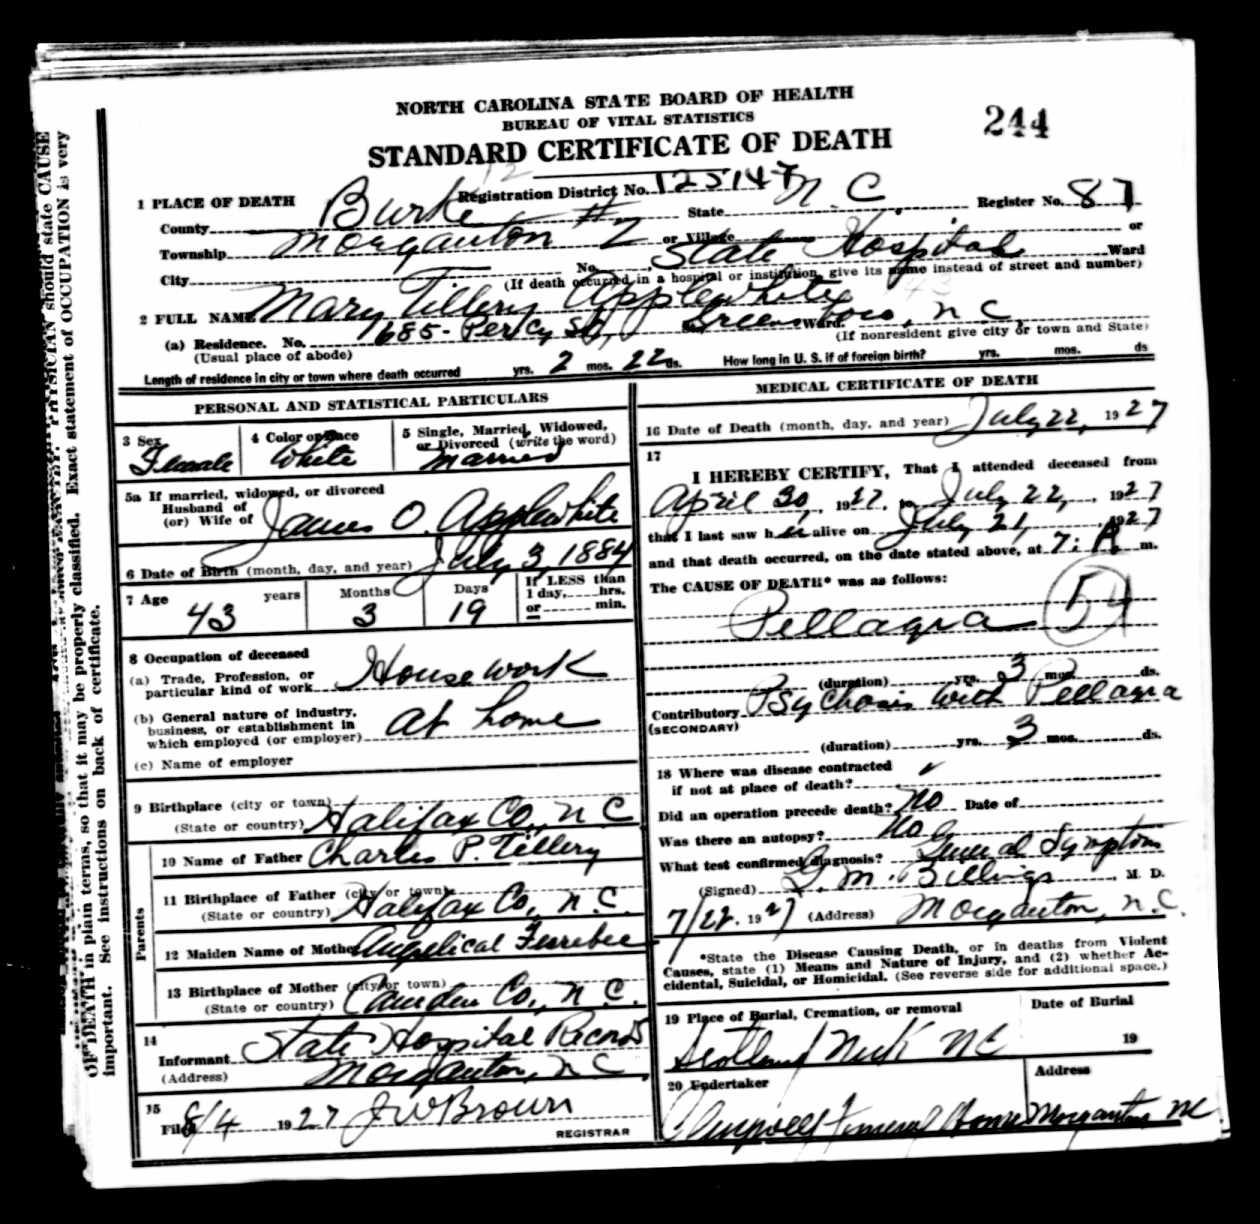 NORTH CAROLINA STATE BOARD OF HEALTH
BUREAU OF VITAL STATISTICS
244
STANDARD CERTIFICATE OF DEATH
1 PLACE OF DEATH Registration District No. 125147
County Burke State N. C. Register No. 87
Township Morganton # 2 or Village or
City No. State Hospital Ward
(If death occurred in a hospital or institution, give its name instead of street and number)
2 FULL NAME Mary Tillery Applewhite
(a) Residence. No. 1685- Percy St, Ward. Greensboro, N C,
(Usual place of abode) (If nonresident give city or town and State)
Length of residence in city or town where death occurred yrs. 2 mos. 22 ds. How long in U. S. if of foreign birth? yrs. mos. ds
PERSONAL AND STATISTICAL PARTICULARS
3 Sex Female
4 Color or Race White
5 Single, Married, Widowed, or Divorced (write the word) Married
5a If married, widowed, or divorced
Husband of
(or) Wife of James O. Applewhite
6 Date of Birth (month, day, and year) July 3, 1884
7 Age 43 years Months 3 Days 19 If LESS than 1 day, hrs. or min.
8 Occupation of deceased
(a) Trade, Profession, or particular kind of work Housework
(b) General nature of industry, business, or establishment in which employed (or employer) At home
(c) Name of employer
9 Birthplace (city or town)
(State or country) Halifax Co., N C
Parents
10 Name of Father Charles P. Tillery
11 Birthplace of Father (city or town)
(State or country) Halifax Co., N. C.
12 Maiden Name of Mother Angelical Ferrebee
13 Birthplace of Mother (city or town)
(State or country) Camden Co., N. C.
14
Informant State Hospital Records
(Address) Morganton, N C.
15
Filed 8/4 1927 J W Brown
REGISTRAR
MEDICAL CERTIFICATE OF DEATH
16 Date of Death (month, day, and year) July 22, 1927
17
I HEREBY CERTIFY, That I attended deceased from
April 30, 1927, to July 22, 1927
that I last saw her alive on July 21, 1927
and that death occurred, on the date stated above, at 7: A. m.
The CAUSE OF DEATH* was as follows:
Pellagra 54
(duration) yrs. 3 mos. ds.
Contributory Psychosis with Pellagra
(SECONDARY)
(duration) yrs. 3 mos. ds.
18 Where was disease contracted
if not at place of death? ✓
Did an operation precede death? No Date of
Was there an autopsy? No
What test confirmed diagnosis? General Symptoms
(Signed) G. M. Billings, M. D.
7/22. 1927 (Address) Morganton, N. C.
*State the Disease Causing Death, or in deaths from Violent
Causes, state (1) Means and Nature of Injury, and (2) whether Ac-
cidental, Suicidal, or Homicidal. (See reverse side for additional space.)
19 Place of Burial, Cremation, or removal Date of Burial
Scotland Neck NC 19
20 Undertaker Address
Funeral Home Morganton NC
PHYSICIAN should state CAUSE
OF DEATH in plain terms, so that it may be properly classified. Exact statement of OCCUPATION is very
important. See instructions on back of certificate.